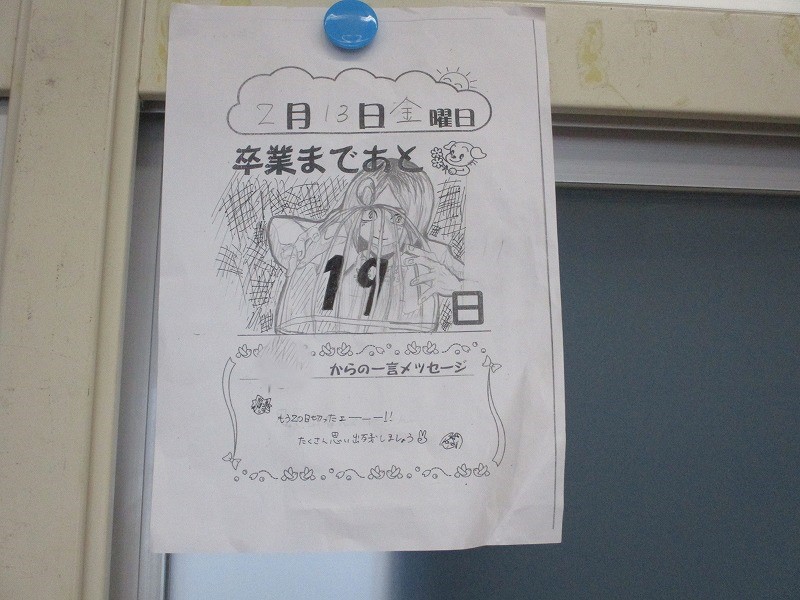 2月13日金曜日
卒業まであと
19日
からの一言メッセージ
もう20日切ったェーーー!!
たくさん思い出残しましょう